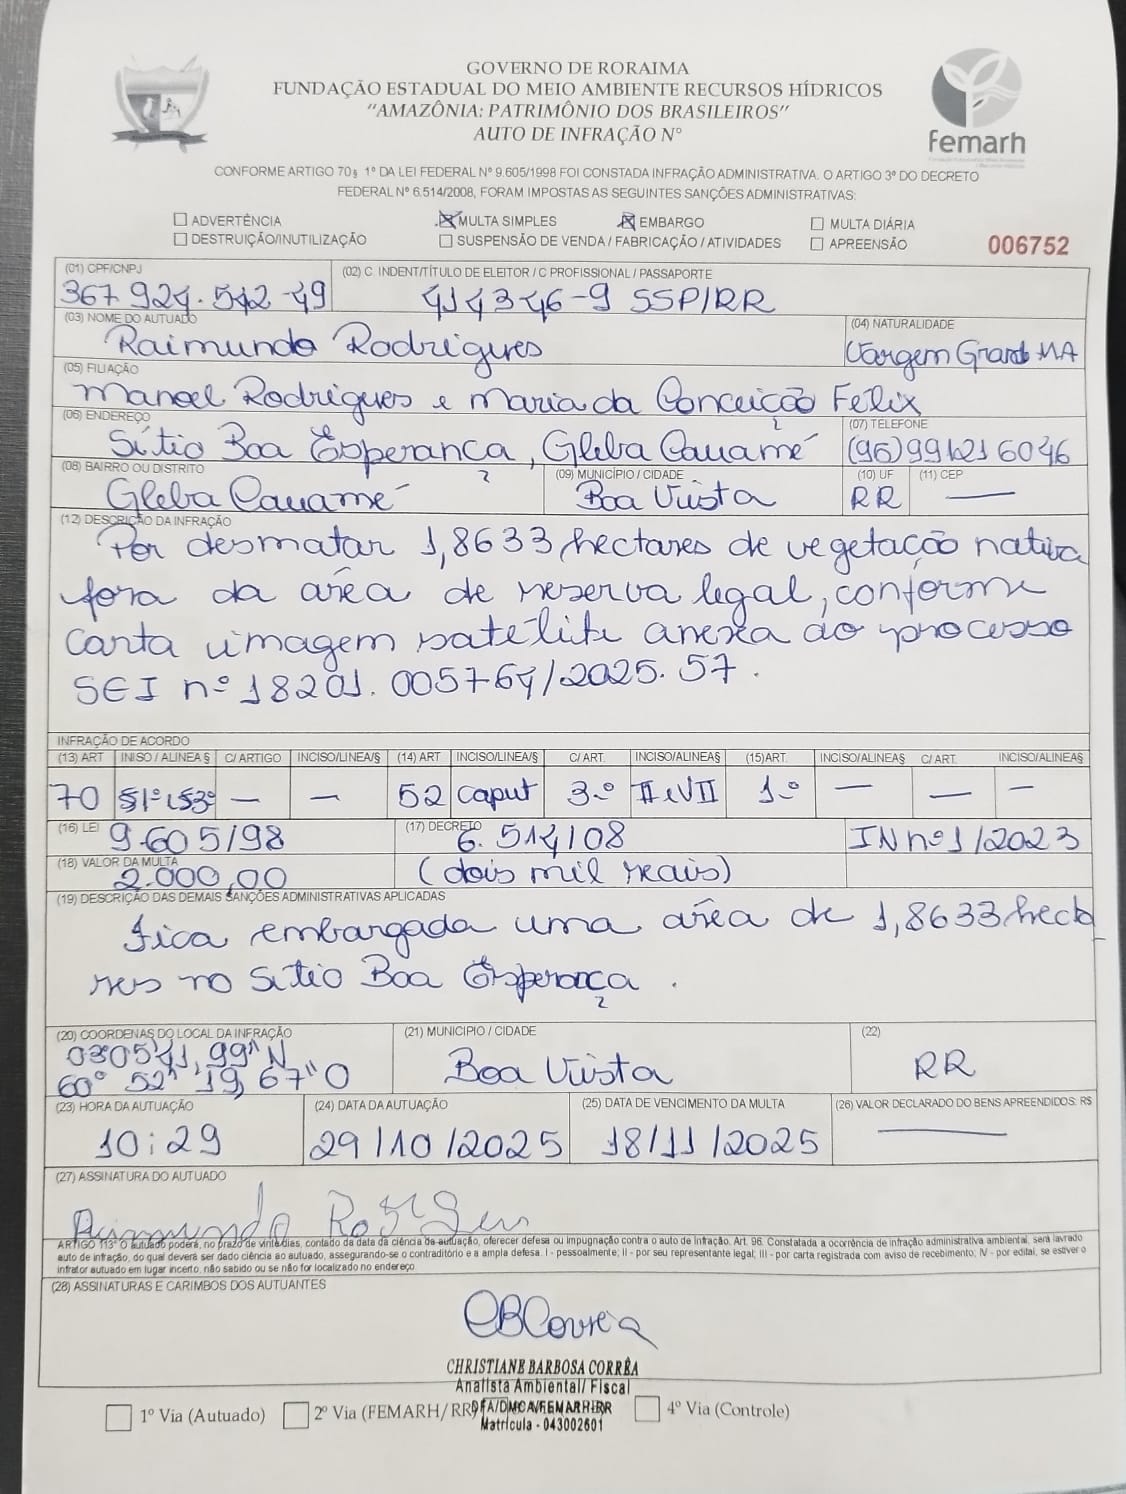 GOVERNO DE RORAIMA
FUNDAÇÃO ESTADUAL DO MEIO AMBIENTE RECURSOS HÍDRICOS
"AMAZÔNIA: PATRIMÔNIO DOS BRASILEIROS"
AUTO DE INFRAÇÃO N°
femarh
CONFORME ARTIGO 70§ 1° DA LEI FEDERAL N° 9.605/1998 FOI CONSTADA INFRAÇÃO ADMINISTRATIVA. O ARTIGO 3° DO DECRETO
FEDERAL N° 6.514/2008, FORAM IMPOSTAS AS SEGUINTES SANÇÕES ADMINISTRATIVAS:
ADVERTÊNCIA MULTA SIMPLES EMBARGO MULTA DIÁRIA
DESTRUIÇÃO/INUTILIZAÇÃO SUSPENSÃO DE VENDA / FABRICAÇÃO / ATIVIDADES APREENSÃO 006752
(01) CPF/CNPJ (02) C. INDENT/TÍTULO DE ELEITOR / C PROFISSIONAL / PASSAPORTE
367.924.542-49 414346-9 SSP/RR
(03) NOME DO AUTUADO (04) NATURALIDADE
Raimundo Rodrigues Vargem Grande MA
(05) FILIAÇÃO
Manoel Rodrigues e Maria da Conceição Felix
(06) ENDEREÇO (07) TELEFONE
Sítio Boa Esperança, Gleba Cauamé (95)991216046
(08) BAIRRO OU DISTRITO (09) MUNICÍPIO / CIDADE (10) UF (11) CEP
Gleba Cauamé Boa Vista RR —
(12) DESCRIÇÃO DA INFRAÇÃO
Por desmatar 1,8633 hectares de vegetação nativa
fora da área de reserva legal, conforme
carta imagem satélite anexa ao processo
SEI n° 18201.005764/2025.57.
INFRAÇÃO DE ACORDO
(13) ART INISO / ALINEA § C/ ARTIGO INCISO/LINEA/§ (14) ART INCISO/LINEA/§ C/ ART. INCISO/ALINEA§ (15)ART. INCISO/ALINEA§ C/ ART. INCISO/ALINEA§
70 §1° e §3° — — 52 caput 3.° II e VII 1.° — — —
(16) LEI (17) DECRETO
9.605/98 6.514/08 IN n°1/2023
(18) VALOR DA MULTA
2.000,00 (dois mil reais)
(19) DESCRIÇÃO DAS DEMAIS SANÇÕES ADMINISTRATIVAS APLICADAS
Fica embargada uma área de 1,8633 hecta
res no Sítio Boa Esperança.
(20) COORDENAS DO LOCAL DA INFRAÇÃO (21) MUNICIPIO / CIDADE (22)
Boa Vista RR
60° 52' 19,67" O
(23) HORA DA AUTUAÇÃO (24) DATA DA AUTUAÇÃO (25) DATA DE VENCIMENTO DA MULTA (26) VALOR DECLARADO DO BENS APREENDIDOS: R$
10:29 29/10/2025 18/11/2025 —
(27) ASSINATURA DO AUTUADO
Raimundo
ARTIGO 113° O autuado poderá, no prazo de vinte dias, contado da data da ciência da autuação, oferecer defesa ou impugnação contra o auto de infração. Art. 96. Constatada a ocorrência de infração administrativa ambiental, será lavrado
auto de infração, do qual deverá ser dado ciência ao autuado, assegurando-se o contraditório e a ampla defesa. I - pessoalmente; II - por seu representante legal; III - por carta registrada com aviso de recebimento; IV - por edital, se estiver o
infrator autuado em lugar incerto, não sabido ou se não for localizado no endereço.
(28) ASSINATURAS E CARIMBOS DOS AUTUANTES
CBCorrêa
CHRISTIANE BARBOSA CORRÊA
Analista Ambiental/ Fiscal
DFA/DMCA/FEMARH-RR
Matrícula - 043002601
1° Via (Autuado) 2° Via (FEMARH/RR) 4° Via (Controle)